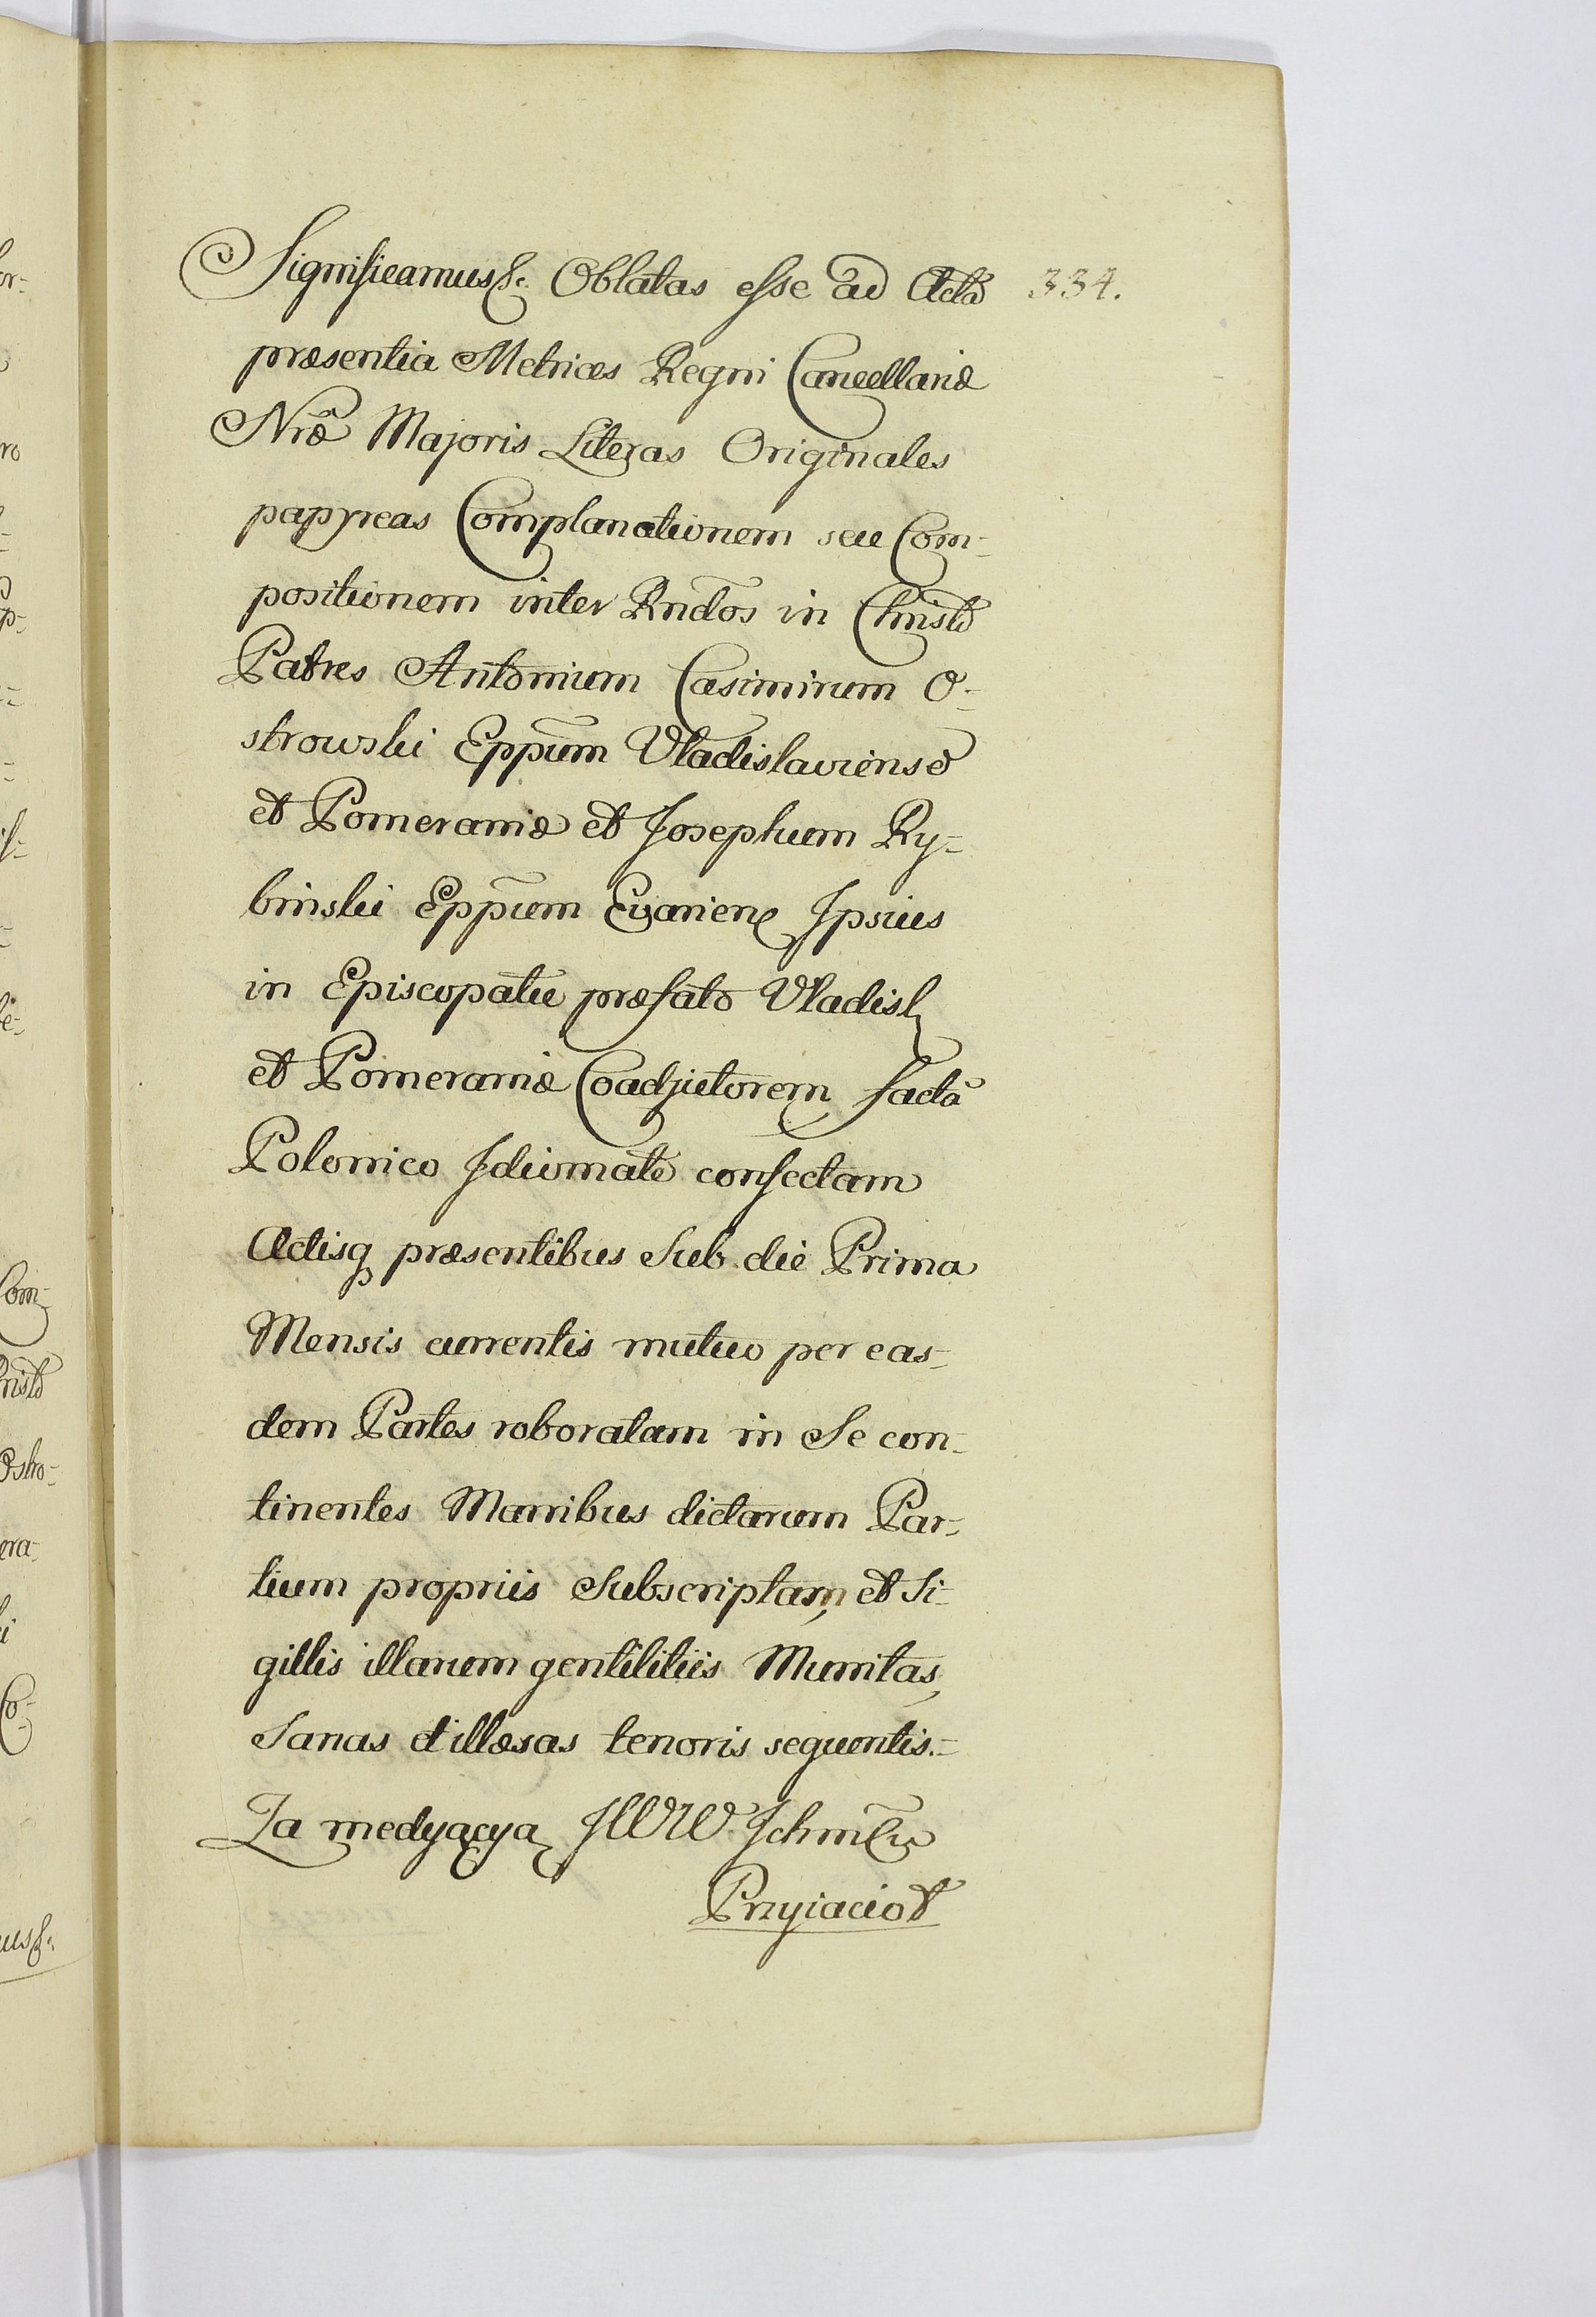 Significamus &c. Oblatas esse ad Acta 334.
præsentia Metrices Regni Cancellariæ
Nrã Majoris Literas Originales
papyreas Complanationem seu Com-
positionem inter Rndos in Christo
Patres Antonium Casimirum O-
strowski Eppum Vladislaviense
et Pomeraniæ et Josephum Ry-
binski Eppum Ipsius
in Episcopatu præfato Vladisl
et Pomeraniæ Coadjutorem factã
Polonico Idiomate confectam
Actisq præsentibus Sub die Prima
Mensis currentis mutuo per eas-
dem Partes roboratam in Se con-
tinentes Manibus dictarum Par-
tium propriis Subscriptam, et Si-
gillis illarum gentilitiis Munitas,
Sanas et illæsas tenoris sequentis.-
Za medyacyą JWW
Przyjaciół